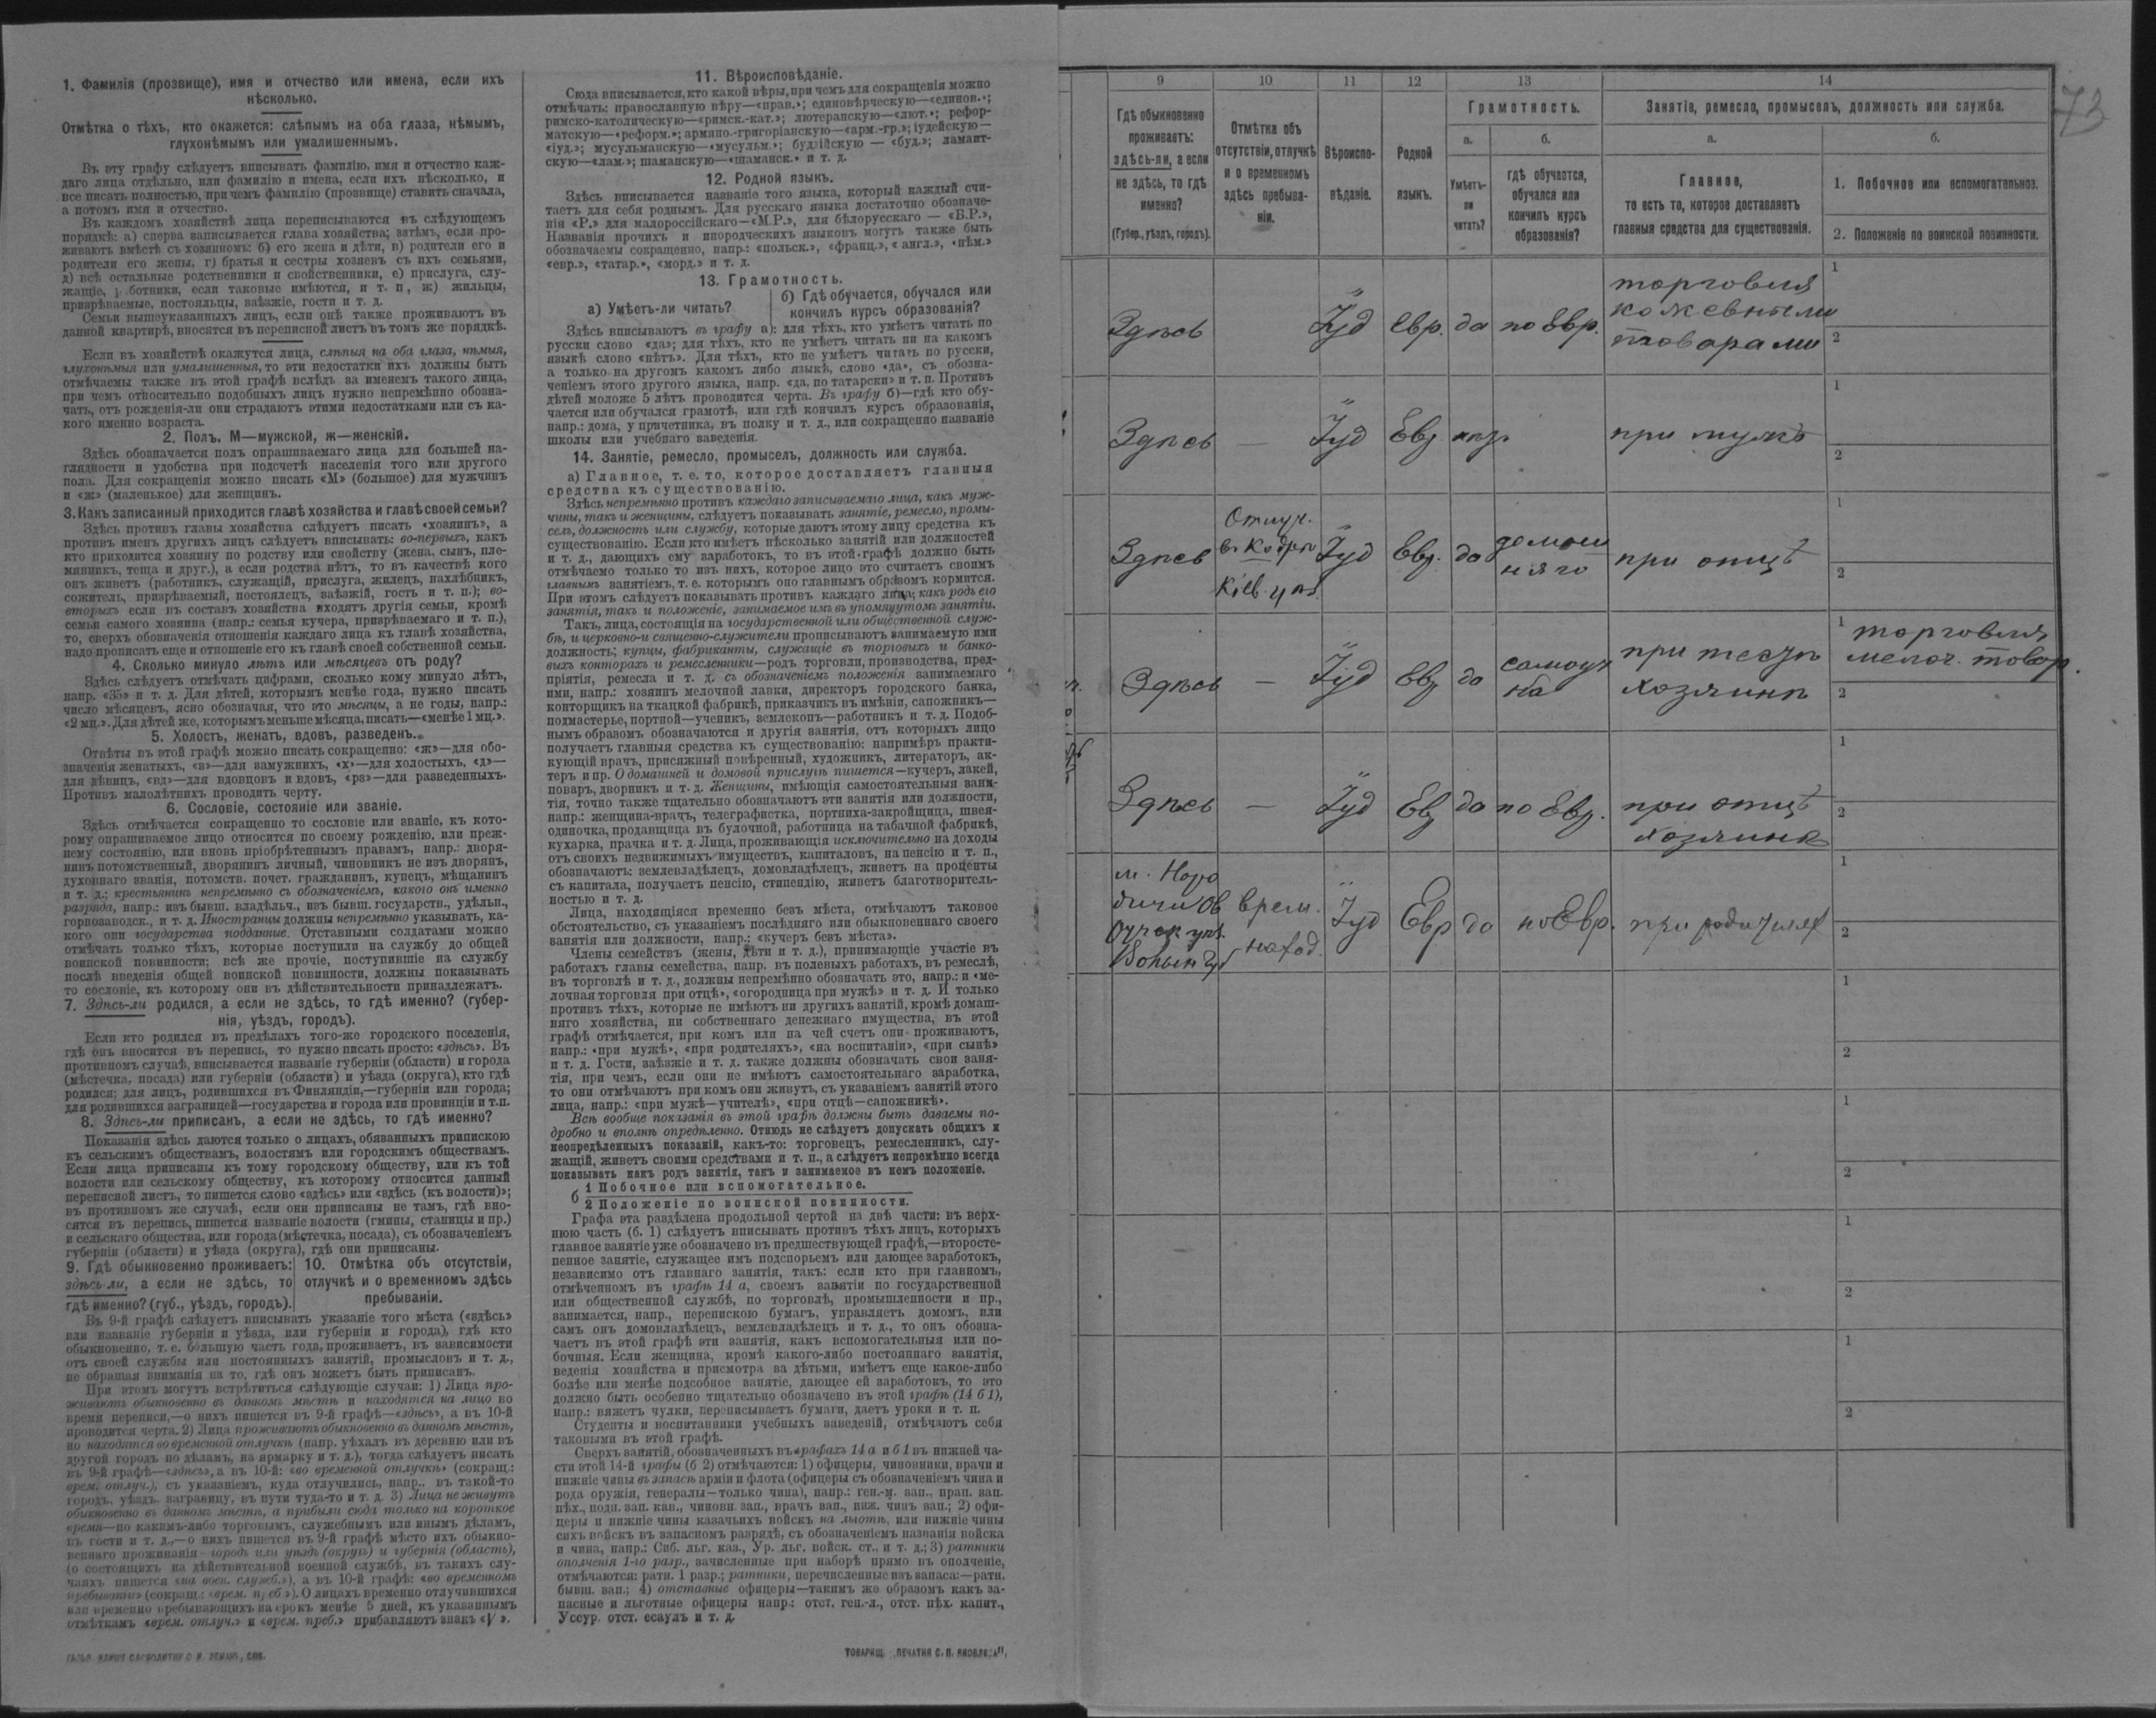 1. Фамилія (прозвище), имя и отчество или имена, если ихъ
нѣсколько.
Отмѣтка о тѣхъ, кто окажется: слѣпымъ на оба глаза, нѣмымъ,
глухонѣмымъ или умалишеннымъ.
Въ эту графу слѣдуетъ вписывать фамилію, имя и отчество каж-
даго лица отдѣльно, или фамилію и имена, если ихъ нѣсколько, и
все писать полностью, при чемъ фамилію (прозвище) ставить сначала,
а потомъ имя и отчество.
Въ каждомъ хозяйствѣ лица переписываются въ слѣдующемъ
порядкѣ: а) сперва записывается глава хозяйства; затѣмъ, если про-
живаютъ вмѣстѣ съ хозяиномъ: б) его жена и дѣти, в) родители его и
родители его жены, г) братья и сестры хозяевъ съ ихъ семьями,
д) всѣ остальные родственники и свойственники, е) прислуга, слу-
жащіе, работники, если таковые имѣются, и т. п, ж) жильцы,
призрѣваемые, постояльцы, заѣзжіе, гости и т. д.
Семьи вышеуказанныхъ лицъ, если онѣ также проживаютъ въ
данной квартирѣ, вносятся въ переписной листъ въ томъ же порядкѣ.
Если въ хозяйствѣ окажутся лица, слѣпыя на оба глаза, нѣмыя,
глухонѣмыя или умалишенныя, то эти недостатки ихъ должны быть
отмѣчаемы также въ этой графѣ вслѣдъ за именемъ такого лица,
при чемъ относительно подобныхъ лицъ нужно непремѣнно обозна-
чать, отъ рожденія-ли они страдаютъ этими недостатками или съ ка-
кого именно возраста.
2. Полъ. М—мужской, ж—женскій.
Здѣсь обозначается полъ опрашиваемаго лица для большей на-
глядности и удобства при подсчетѣ населенія того или другого
пола. Для сокращенія можно писать «М» (большое) для мужчинъ
и «ж» (маленькое) для женщинъ.
3. Какъ записанный приходится главѣ хозяйства и главѣ своей семьи?
Здѣсь противъ главы хозяйства слѣдуетъ писать «хозяинъ», а
противъ именъ другихъ лицъ слѣдуетъ вписывать: во-первыхъ, какъ
кто приходится хозяину по родству или свойству (жена, сынъ, пле-
мянникъ, теща и друг.), а если родства нѣтъ, то въ качествѣ кого
онъ живетъ (работникъ, служащій, прислуга, жилецъ, нахлѣбникъ,
сожитель, призрѣваемый, постоялецъ, заѣзжій, гость и т. п.); во-
вторыхъ если въ составъ хозяйства входятъ другія семьи, кромѣ
семьи самого хозяина (напр.: семья кучера, призрѣваемаго и т. п.),
то, сверхъ обозначенія отношенія каждаго лица къ главѣ хозяйства,
надо прописать еще и отношеніе его къ главѣ своей собственной семьи.
4. Сколько минуло лѣтъ или мѣсяцевъ отъ роду?
Здѣсь слѣдуетъ отмѣчать цифрами, сколько кому минуло лѣтъ,
напр. «35» и т. д. Для дѣтей, которымъ менѣе года, нужно писать
число мѣсяцевъ, ясно обозначая, что это мѣсяцы, а не годы, напр.:
«2 мц.». Для дѣтей же, которымъ меньше мѣсяца, писать—«менѣе 1 мц.».
5. Холостъ, женатъ, вдовъ, разведенъ.
Отвѣты въ этой графѣ можно писать сокращенно: «ж»—для обо-
значенія женатыхъ, «з»—для замужнихъ, «х»—для холостыхъ, «д»—
для дѣвицъ, «вд»—для вдовцовъ и вдовъ, «рз»—для разведенныхъ.
Противъ малолѣтнихъ проводить черту.
6. Сословіе, состояніе или званіе.
Здѣсь отмѣчается сокращенно то сословіе или званіе, къ кото-
рому опрашиваемое лицо относится по своему рожденію, или преж-
нему состоянію, или вновь пріобрѣтеннымъ правамъ, напр.: дворя-
нинъ потомственный, дворянинъ личный, чиновникъ не изъ дворянъ,
духовнаго званія, потомств. почет. гражданинъ, купецъ, мѣщанинъ
и т. д.; крестьянинъ непремѣнно съ обозначеніемъ, какого онъ именно
разряда, напр.: изъ бывш. владѣльч., изъ бывш. государств., удѣльн.,
горнозаводск., и т. д. Иностранцы должны непремѣнно указывать, ка-
кого они государства подданные. Отставными солдатами можно
отмѣчать только тѣхъ, которые поступили на службу до общей
воинской повинности; всѣ же прочіе, поступившіе на службу
послѣ введенія общей воинской повинности, должны показывать
то сословіе, къ которому они въ дѣйствительности принадлежатъ.
7. Здѣсь-ли родился, а если не здѣсь, то гдѣ именно? (губер-
нія, уѣздъ, городъ).
Если кто родился въ предѣлахъ того-же городского поселенія,
гдѣ онъ вносится въ перепись, то нужно писать просто: «здѣсь». Въ
противномъ случаѣ, вписывается названіе губерніи (области) и города
(мѣстечка, посада) или губерніи (области) и уѣзда (округа), кто гдѣ
родился; для лицъ, родившихся въ Финляндіи,—губерніи или города;
для родившихся заграницей—государства и города или провинціи и т.п.
8. Здѣсь-ли приписанъ, а если не здѣсь, то гдѣ именно?
Показанія здѣсь даются только о лицахъ, обязанныхъ припискою
къ сельскимъ обществамъ, волостямъ или городскимъ обществамъ.
Если лица приписаны къ тому городскому обществу, или къ той
волости или сельскому обществу, къ которому относится данный
переписной листъ, то пишется слово «здѣсь» или «здѣсь (къ волости)»;
въ противномъ же случаѣ, если они приписаны не тамъ, гдѣ вно-
сятся въ перепись, пишется названіе волости (гмины, станицы и пр.)
и сельскаго общества, или города (мѣстечка, посада), съ обозначеніемъ
губерніи (области) и уѣзда (округа), гдѣ они приписаны.
9. Гдѣ обыкновенно проживаетъ:
здѣсь ли, а если не здѣсь, то
гдѣ именно? (губ., уѣздъ, городъ).
10. Отмѣтка объ отсутствіи,
отлучкѣ и о временномъ здѣсь
пребываніи.
Въ 9-й графѣ слѣдуетъ вписывать указаніе того мѣста («здѣсь»
или названіе губерніи и уѣзда, или губерніи и города), гдѣ кто
обыкновенно, т. е. большую часть года, проживаетъ, въ зависимости
отъ своей службы или постоянныхъ занятій, промысловъ и т. д.,
не обращая вниманія на то, гдѣ онъ можетъ быть приписанъ.
При этомъ могутъ встрѣтиться слѣдующіе случаи: 1) Лица про-
живаютъ обыкновенно въ данномъ мѣстѣ и находятся на лицо во
время переписи,—о нихъ пишется въ 9-й графѣ—«здѣсь», а въ 10-й
проводится черта. 2) Лица проживаютъ обыкновенно въ данномъ мѣстѣ,
но находятся во временной отлучкѣ (напр. уѣхалъ въ деревню или въ
другой городъ по дѣламъ, на ярмарку и т. д.), тогда слѣдуетъ писать
въ 9-й графѣ—«здѣсь», а въ 10-й: «во временной отлучкѣ» (сокращ.:
врем. отлуч.), съ указаніемъ, куда отлучились, напр.. въ такой-то
городъ, уѣздъ, заграницу, въ пути туда-то и т. д. 3) Лица не живутъ
обыкновенно въ данномъ мѣстѣ, а прибыли сюда только на короткое
время—по какимъ-либо торговымъ, служебнымъ или инымъ дѣламъ,
въ гости и т. д.,—о нихъ пишется въ 9-й графѣ мѣсто ихъ обыкно-
веннаго проживанія—городъ или уѣздъ (округъ) и губернія (область),
(о состоящихъ на дѣйствительной военной службѣ, въ такихъ слу-
чаяхъ пишется «на воен. служб.»), а въ 10-й графѣ: «во временномъ
пребываніи» (сокращ.: «врем. преб»). О лицахъ временно отлучившихся
или временно пребывающихъ на срокъ менѣе 5 дней, къ указаннымъ
отмѣткамъ «врем. отлуч.» и «врем. преб.» прибавляютъ знакъ «V».
11. Вѣроисповѣданіе.
Сюда вписывается, кто какой вѣры, при чемъ для сокращенія можно
отмѣчать: православную вѣру—«прав.»; единовѣрческую—«единов.»;
римско-католическую—«римск.-кат.»; лютеранскую—«лют.»; рефор-
матскую—«реформ.»; армяно-григоріанскую—«арм.-гр.»; іудейскую—
«іуд.»; мусульманскую—«мусульм.»; буддійскую — «буд.»; ламаит-
скую—«лам.»; шаманскую—«шаманск.» и т. д.
12. Родной языкъ.
Здѣсь вписывается названіе того языка, который каждый счи-
таетъ для себя роднымъ. Для русскаго языка достаточно обозначе-
нія «Р.» для малороссійскаго—«М.Р.», для бѣлорусскаго — «Б.Р.»,
Названія прочихъ и инородческихъ языковъ могутъ также быть
обозначаемы сокращенно, напр.: «польск.», «франц.», « англ.», «нѣм.»
«евр.», «татар.», «морд.» и т. д.
13. Грамотность.
а) Умѣетъ-ли читать?
б) Гдѣ обучается, обучался или
кончилъ курсъ образованія?
Здѣсь вписываютъ въ графу а): для тѣхъ, кто умѣетъ читать по
русски слово «да»; для тѣхъ, кто не умѣетъ читать ни на какомъ
языкѣ слово «нѣтъ». Для тѣхъ, кто не умѣетъ читать по русски,
а только на другомъ какомъ либо языкѣ, слово «да», съ обозна-
ченіемъ этого другого языка, напр. «да, по татарски» и т. п. Противъ
дѣтей моложе 5 лѣтъ проводится черта. Въ графу б)—гдѣ кто обу-
чается или обучался грамотѣ, или гдѣ кончилъ курсъ образованія,
напр.: дома, у причетника, въ полку и т. д., или сокращенно названіе
школы или учебнаго заведенія.
14. Занятіе, ремесло, промыселъ, должность или служба.
а) Главное, т. е. то, которое доставляетъ главныя
средства къ существованію.
Здѣсь непремѣнно противъ каждаго записываемаго лица, какъ муж-
чины, такъ и женщины, слѣдуетъ показывать занятіе, ремесло, промы-
селъ, должность или службу, которые даютъ этому лицу средства къ
существованію. Если кто имѣетъ нѣсколько занятій или должностей
и т. д., дающихъ ему заработокъ, то въ этой графѣ должно быть
отмѣчаемо только то изъ нихъ, которое лицо это считаетъ своимъ
главнымъ занятіемъ, т. е. которымъ оно главнымъ образомъ кормится.
При этомъ слѣдуетъ показывать противъ каждаго лица, какъ родъ его
занятія, такъ и положеніе, занимаемое имъ въ упомянутомъ занятіи.
Такъ, лица, состоящія на государственной или общественной служ-
бѣ, и церковно-и священно-служители прописываютъ занимаемую ими
должность; купцы, фабриканты, служащіе въ торговыхъ и банко-
выхъ конторахъ и ремесленники—родъ торговли, производства, пред-
пріятія, ремесла и т. д. съ обозначеніемъ положенія занимаемаго
ими, напр.: хозяинъ мелочной лавки, директоръ городского банка,
конторщикъ на ткацкой фабрикѣ, приказчикъ въ имѣніи, сапожникъ—
подмастерье, портной—ученикъ, землекопъ—работникъ и т. д. Подоб-
нымъ образомъ обозначаются и другія занятія, отъ которыхъ лицо
получаетъ главныя средства къ существованію: напримѣръ практи-
кующій врачъ, присяжный повѣренный, художникъ, литераторъ, ак-
теръ и пр. О домашней и домовой прислугѣ пишется—кучеръ, лакей,
поваръ, дворникъ и т. д. Женщины, имѣющія самостоятельныя заня-
тія, точно также тщательно обозначаютъ эти занятія или должности,
напр.: женщина-врачъ, телеграфистка, портниха-закройщица, швея-
одиночка, продавщица въ булочной, работница на табачной фабрикѣ,
кухарка, прачка и т. д. Лица, проживающія исключительно на доходы
отъ своихъ недвижимыхъ имуществъ, капиталовъ, на пенсію и т. п.,
обозначаютъ: землевладѣлецъ, домовладѣлецъ, живетъ на проценты
съ капитала, получаетъ пенсію, стипендію, живетъ благотворитель-
ностью и т. д.
Лица, находящіяся временно безъ мѣста, отмѣчаютъ таковое
обстоятельство, съ указаніемъ послѣдняго или обыкновеннаго своего
занятія или должности, напр.: «кучеръ безъ мѣста».
Члены семействъ (жены, дѣти и т. д.), принимающіе участіе въ
работахъ главы семейства, напр. въ полевыхъ работахъ, въ ремеслѣ,
въ торговлѣ и т. д., должны непремѣнно обозначать это, напр.: и «ме-
лочная торговля при отцѣ», «огородница при мужѣ» и т. д. И только
противъ тѣхъ, которые не имѣютъ ни другихъ занятій, кромѣ домаш-
няго хозяйства, ни собственнаго денежнаго имущества, въ этой
графѣ отмѣчается, при комъ или на чей счетъ они проживаютъ,
напр.: «при мужѣ», «при родителяхъ», «на воспитаніи», «при сынѣ»
и т. д. Гости, заѣзжіе и т. д. также должны обозначать свои заня-
тія, при чемъ, если они не имѣютъ самостоятельнаго заработка,
то они отмѣчаютъ при комъ они живутъ, съ указаніемъ занятій этого
лица, напр.: «при мужѣ—учителѣ», «при отцѣ—сапожникѣ».
Всѣ вообще показанія въ этой графѣ должны быть даваемы по-
дробно и вполнѣ опредѣленно. Отнюдь не слѣдуетъ допускать общихъ и
неопредѣленныхъ показаній, какъ-то: торговецъ, ремесленникъ, слу-
жащій, живетъ своими средствами и т. п., а слѣдуетъ непремѣнно всегда
показывать какъ родъ занятія, такъ и занимаемое въ немъ положеніе.
б 1 Побочное или вспомогательное.
2 Положеніе по воинской повинности.
Графа эта раздѣлена продольной чертой на двѣ части: въ верх-
нюю часть (б. 1) слѣдуетъ вписывать противъ тѣхъ лицъ, которыхъ
главное занятіе уже обозначено въ предшествующей графѣ,—второсте-
пенное занятіе, служащее имъ подспорьемъ или дающее заработокъ,
независимо отъ главнаго занятія, такъ: если кто при главномъ,
отмѣченномъ въ графѣ 14 а, своемъ занятіи по государственной
или общественной службѣ, по торговлѣ, промышленности и пр.,
занимается, напр., перепискою бумагъ, управляетъ домомъ, или
самъ онъ домовладѣлецъ, землевладѣлецъ и т. д., то онъ обозна-
чаетъ въ этой графѣ эти занятія, какъ вспомогательныя или по-
бочныя. Если женщина, кромѣ какого-либо постояннаго занятія,
веденія хозяйства и присмотра за дѣтьми, имѣетъ еще какое-либо
болѣе или менѣе подсобное занятіе, дающее ей заработокъ, то это
должно быть особенно тщательно обозначено въ этой графѣ (14 б 1),
напр.: вяжетъ чулки, переписываетъ бумаги, даетъ уроки и т. п.
Студенты и воспитанники учебныхъ заведеній, отмѣчаютъ себя
таковыми въ этой графѣ.
Сверхъ занятій, обозначенныхъ въ графахъ 14 а и б 1 въ нижней ча-
сти этой 14-й графы (б 2) отмѣчаются: 1) офицеры, чиновники, врачи и
нижніе чины въ запасѣ арміи и флота (офицеры съ обозначеніемъ чина и
рода оружія, генералы—только чина), напр.: ген.-м. зап., прап. зап.
пѣх., подп. зап. кав., чиновн. зап., врачъ зап., ниж. чинъ зап.; 2) офи-
церы и нижніе чины казачьихъ войскъ на льготѣ, или нижніе чины
сихъ войскъ въ запасномъ разрядѣ, съ обозначеніемъ названія войска
и чина, напр.: Сиб. льг. каз., Ур. льг. войск. ст., и т. д.; 3) ратники
ополченія 1-го разр., зачисленные при наборѣ прямо въ ополченіе,
отмѣчаются: ратн. 1 разр.; ратники, перечисленные изъ запаса:—ратн.
бывш. зап.; 4) отставные офицеры—такимъ же образомъ какъ за-
пасные и льготные офицеры напр.: отст. ген.-л., отст. пѣх. капит.,
Уссур. отст. есаулъ и т. д.
73
9 10 11 12 13 14
Гдѣ обыкновенно
проживаетъ:
здѣсь-ли, а если
не здѣсь, то гдѣ
именно?
(Губер., уѣздъ, городъ).
Отмѣтка объ
отсутствіи, отлучкѣ
и о временномъ
здѣсь пребыва-
ніи.
Вѣроиспо-
вѣданіе.
Родной
языкъ.
Грамотность.
а. б.
Умѣетъ-
ли
читать?
гдѣ обучается,
обучался или
кончилъ курсъ
образованія?
Занятіе, ремесло, промыселъ, должность или служба.
а. б.
Главное,
то есть то, которое доставляетъ
главныя средства для существованія.
1. Побочное или вспомогательное.
2. Положеніе по воинской повинности.
Здѣсь Іуд евр. да по Евр.
торговля
кожевными
товарами
1
2
Здѣсь — Іуд Евр нѣт при мужѣ
1
2
Здѣсь
Отлуч.
Кіев. уѣз.
Іуд Евр. да
домаш
няго
при отцѣ
1
2
Здѣсь — Іуд Евр да
самоуч
ка
при тестѣ
хозяинѣ
1 торговля
мелоч. товар.
2
Здѣсь — Іуд Евр да по Евр.
при отцѣ
хозяинѣ
1
2
м. Наро
дичи Ов
руч уѣз.
Волын губ
врем.
наход.
Іуд Евр да по Евр. при родителях
1
2
1
2
1
2
1
2
1
2